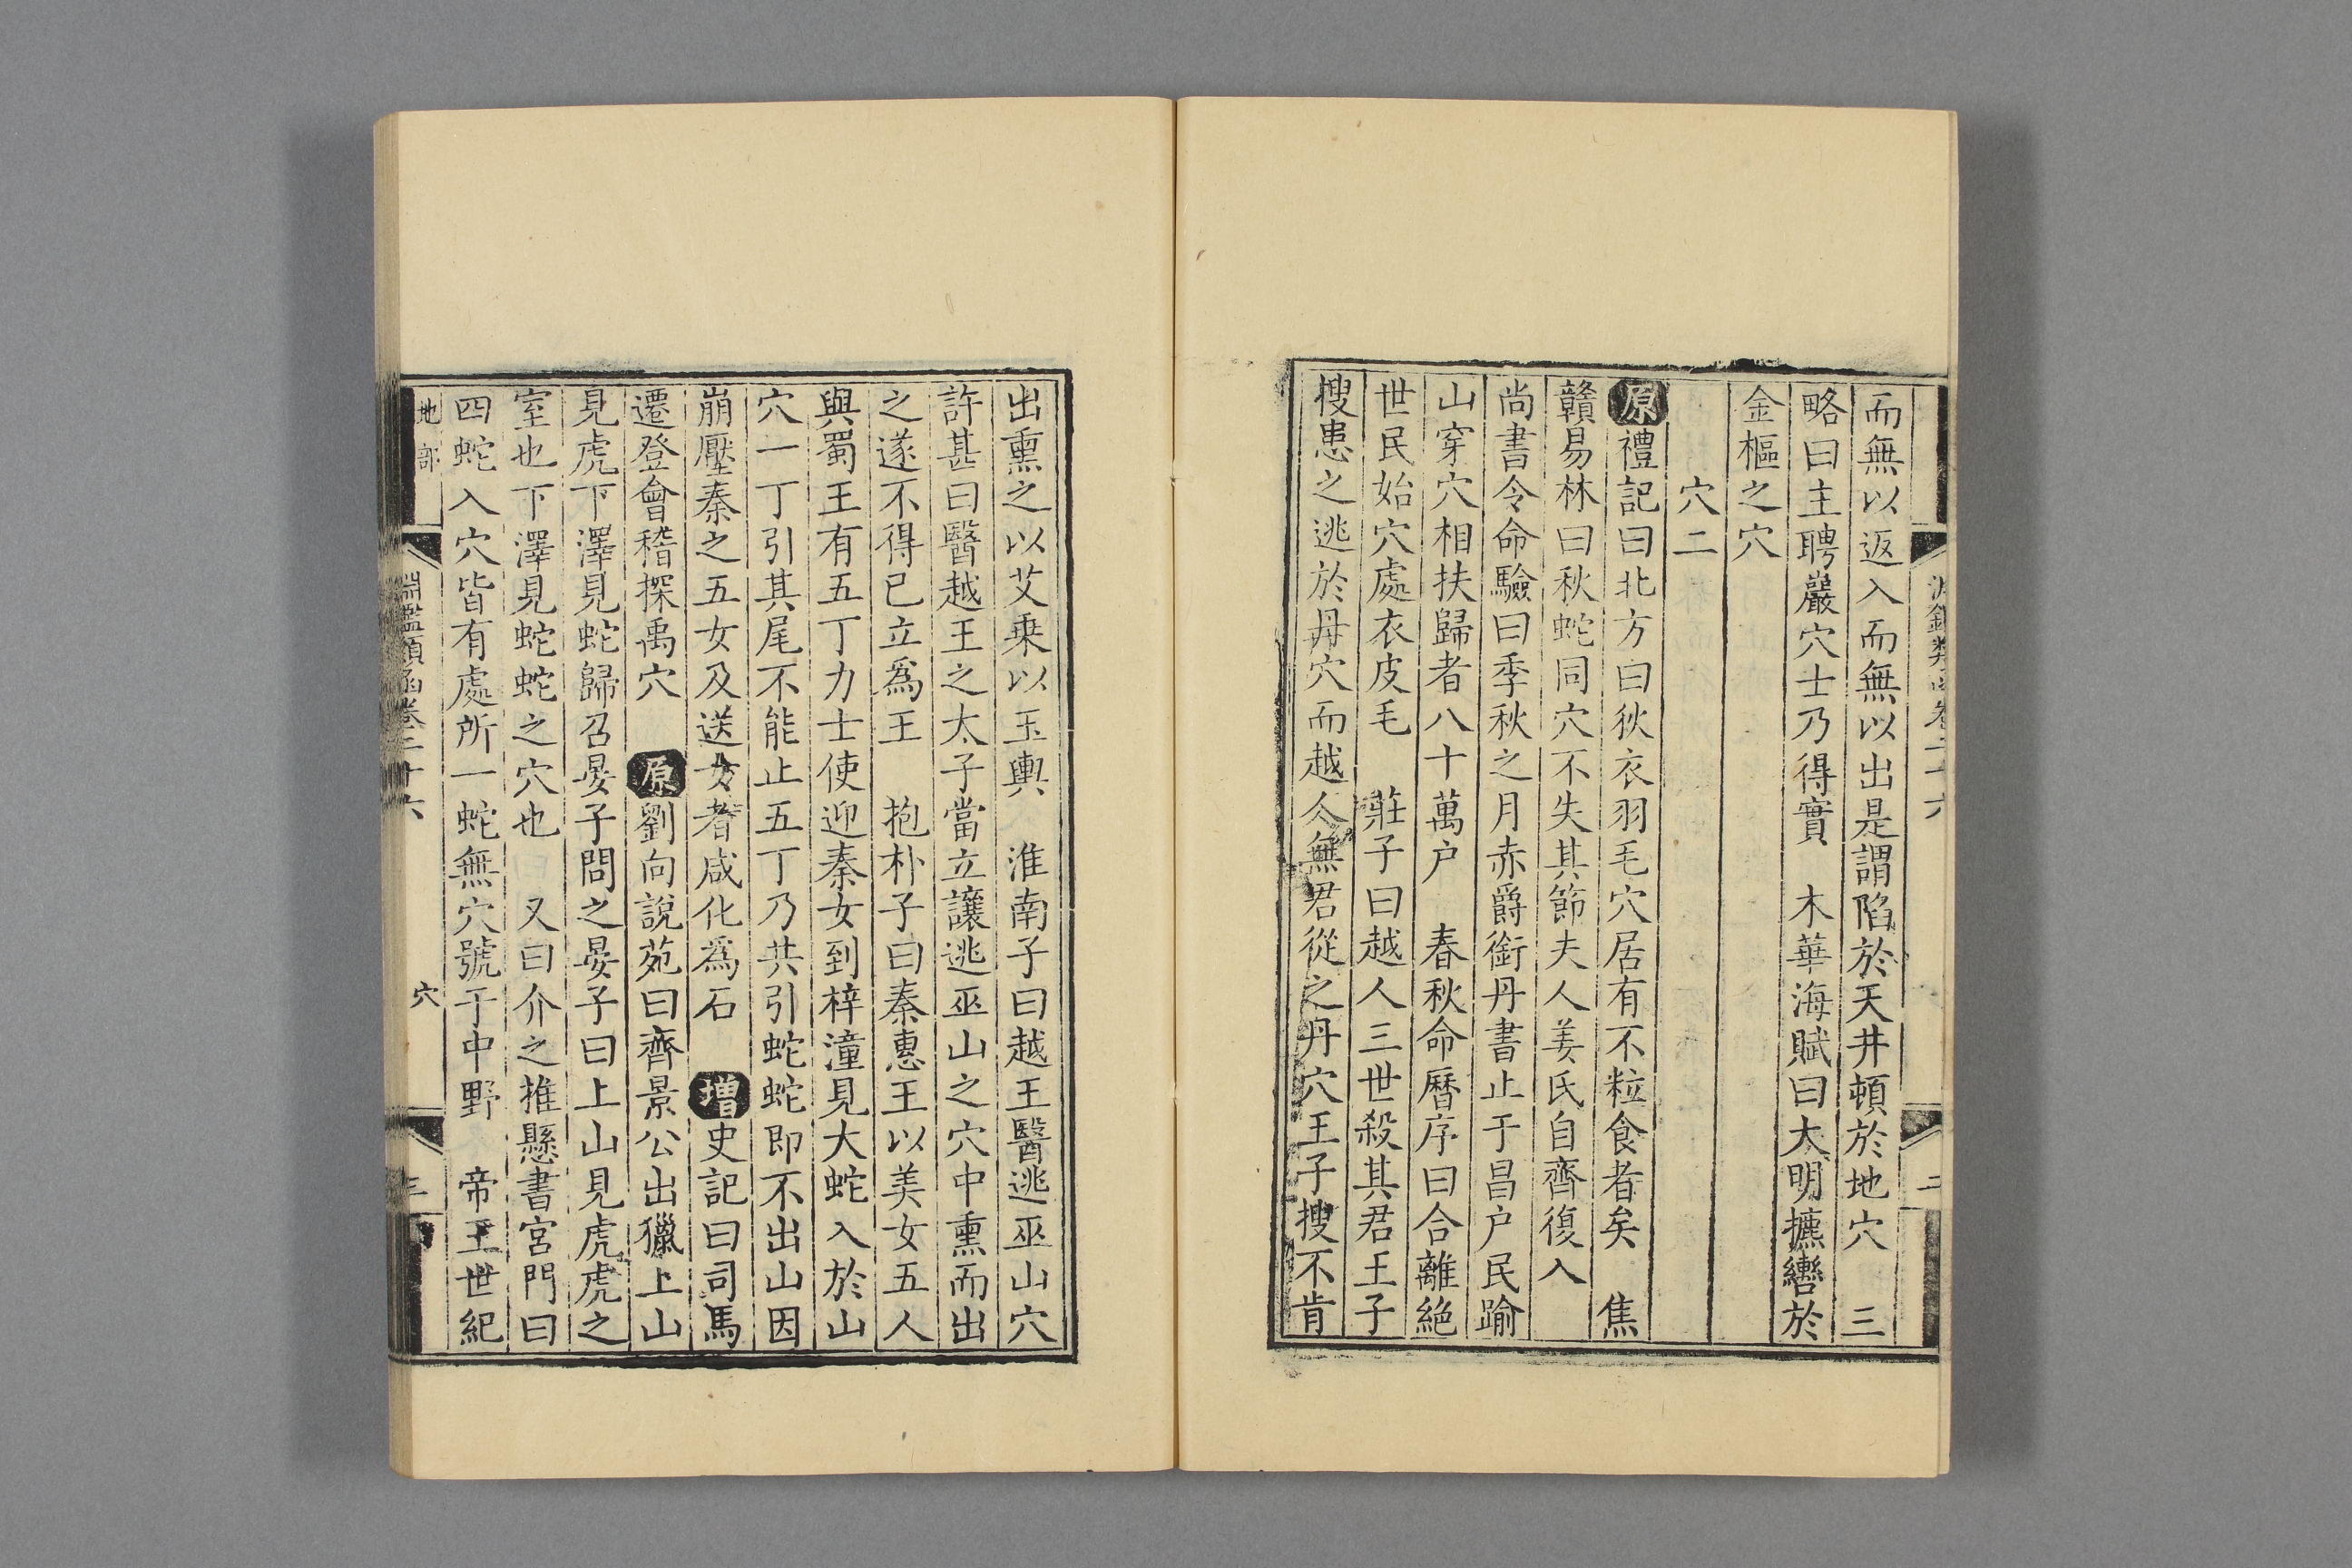 而無以返入而無以出是謂陷於天井頓於地穴　三
略曰主聘巖穴士乃得實　木華海賦曰大明攎轡於
金樞之穴
穴二
原禮記曰北方曰狄衣羽毛穴居有不粒食者矣　焦
贛易林曰秋蛇同穴不失其節夫人姜氏自齊復入
尚書令命驗曰季秋之月赤爵銜丹書止于昌户民踰
山穿穴相扶歸者八十萬户　春秋命曆序曰合離絕
世民始穴處衣皮毛　莊子曰越人三世殺其君王子
搜患之逃於丹穴而越人無君從之丹穴王子搜不肯
出熏之以艾乗以玉輿　淮南子曰越王醫逃巫山穴
許甚曰醫越王之太子當立讓逃巫山之穴中熏而出
之遂不得已立爲王　抱朴子曰秦惠王以美女五人
與蜀王有五丁力士使迎秦女到梓潼見大蛇入於山
穴一丁引其尾不能止五丁乃共引蛇蛇即不出山因
崩壓秦之五女及送女者咸化爲石　增史記曰司馬
遷登會稽探禹穴　原劉向說苑曰齊景公出獵上山
見虎下澤見蛇歸召晏子問之晏子曰上山見虎虎之
室也下澤見蛇蛇之穴也　又曰介之推懸書宮門曰
四蛇入穴皆有處所一蛇無穴號于中野　帝王世紀
地部　淵鑑類函卷二十六　穴　三